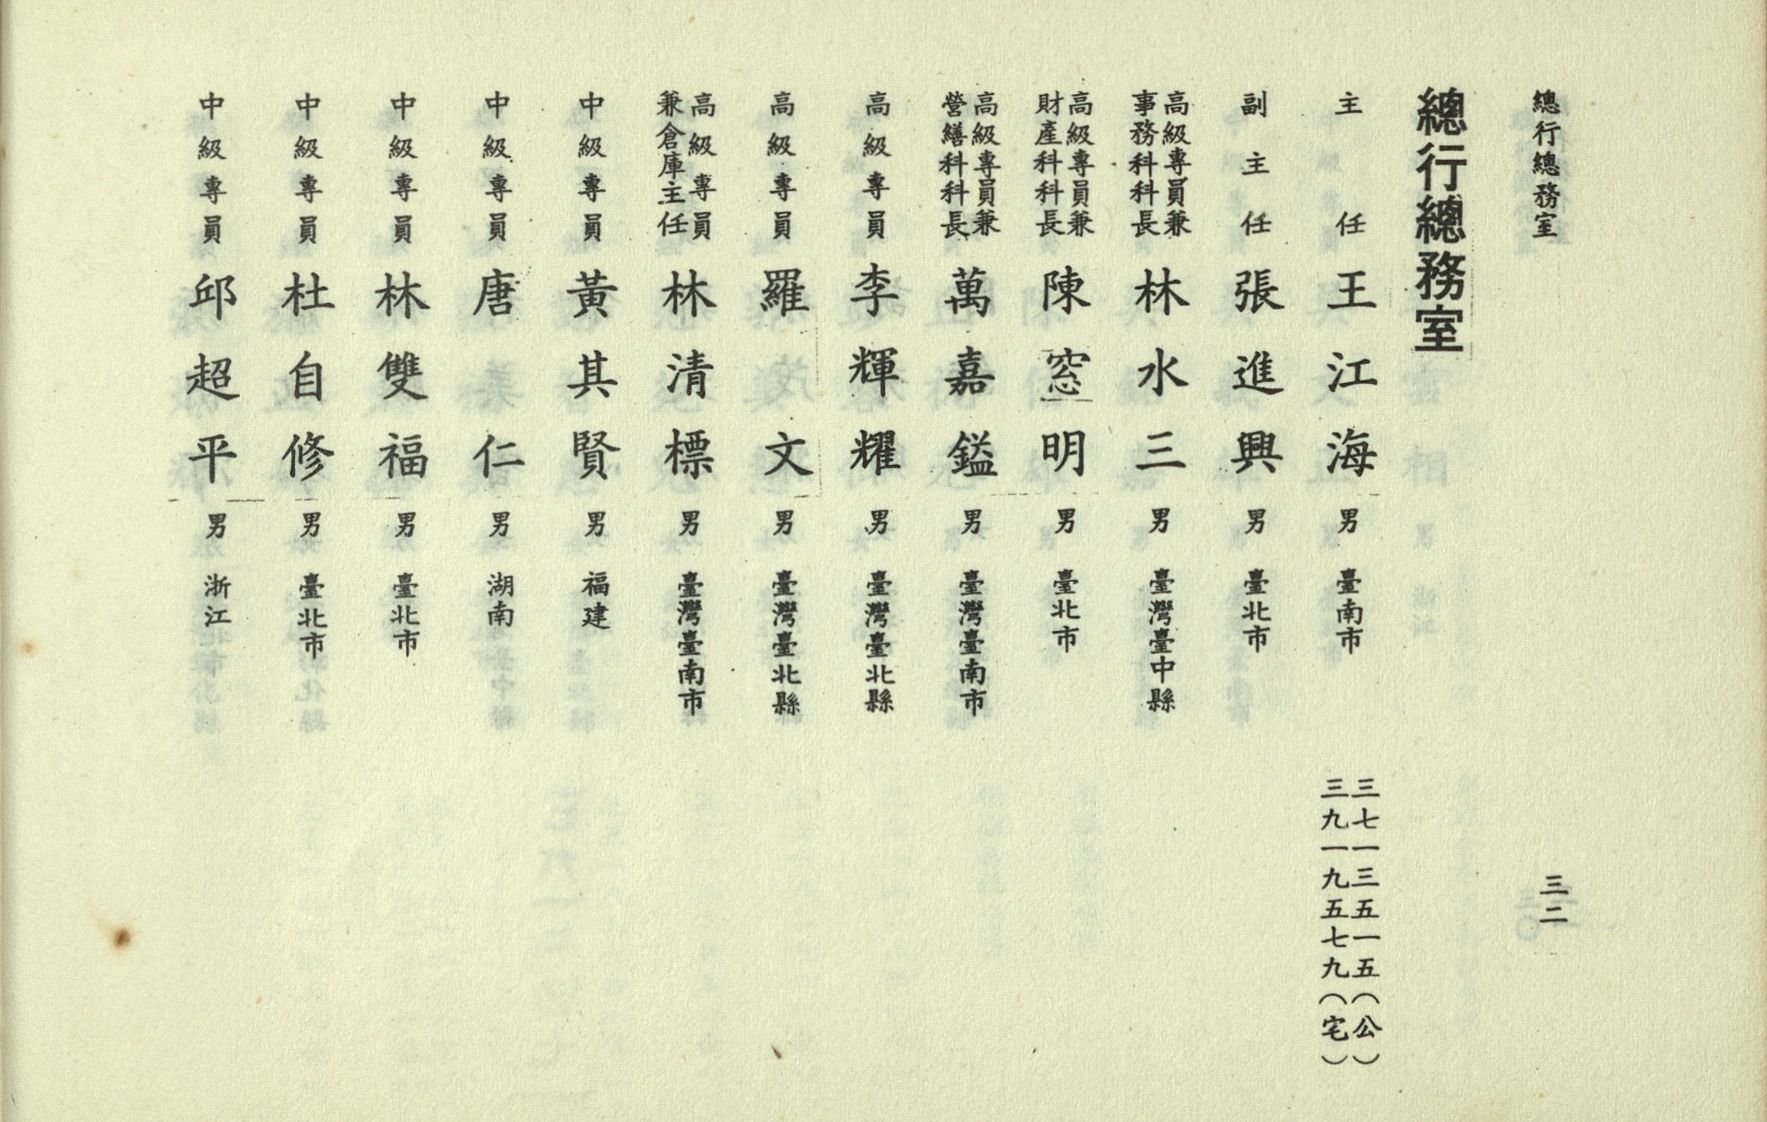 總行總務室
三二
總行總務室
主任 王江海 男 臺南市 三七一三五一五(公)
三九一九五七九(宅)
副主任 張進興 男 臺北市
高級專員兼
事務科科長 林水三 男 臺灣臺中縣
高級專員兼
財產科科長 陳窓明 男 臺北市
高級專員兼
營繕科科長 萬嘉鎰 男 臺灣臺南市
高級專員 李輝耀 男 臺灣臺北縣
高級專員 羅文 男 臺灣臺北縣
高級專員
兼倉庫主任 林清標 男 臺灣臺南市
中級專員 黃其賢 男 福建
中級專員 唐仁 男 湖南
中級專員 林雙福 男 臺北市
中級專員 杜自修 男 臺北市
中級專員 邱超平 男 浙江